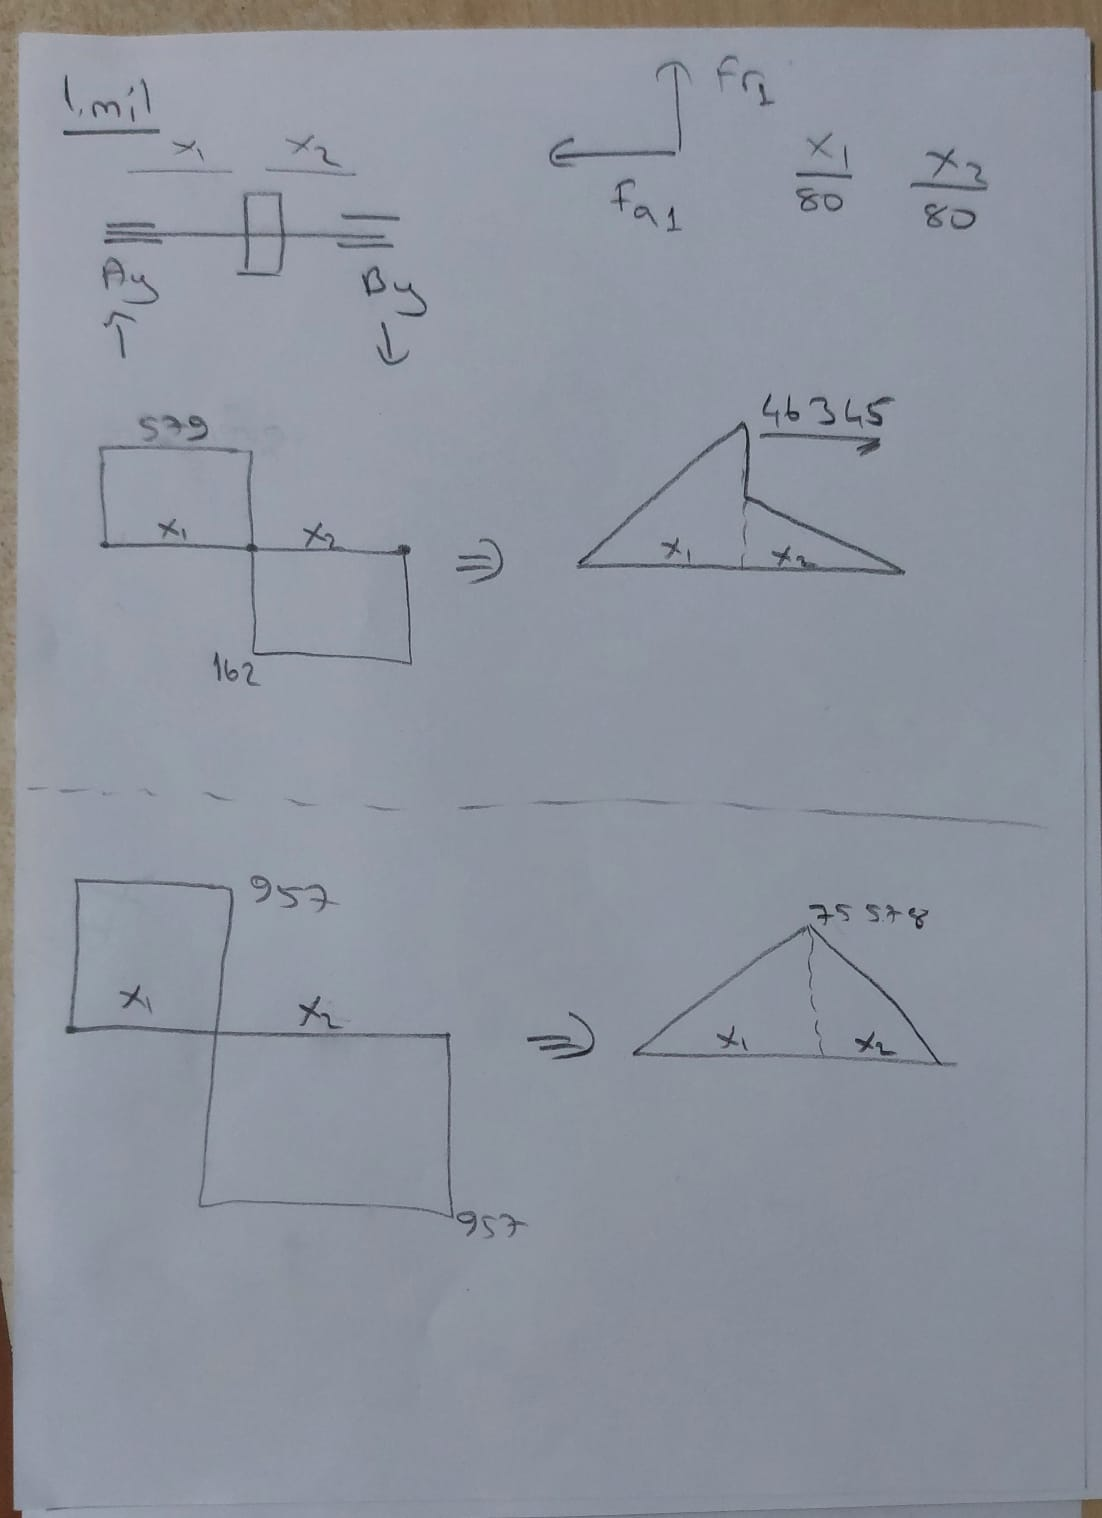 1.mil
x1 x2
Fr1
Fa1
x1
80
x2
80
Ay
By
579
x1 x2
162
46345
x1 x2
957
x1 x2
957
75578
x1 x2